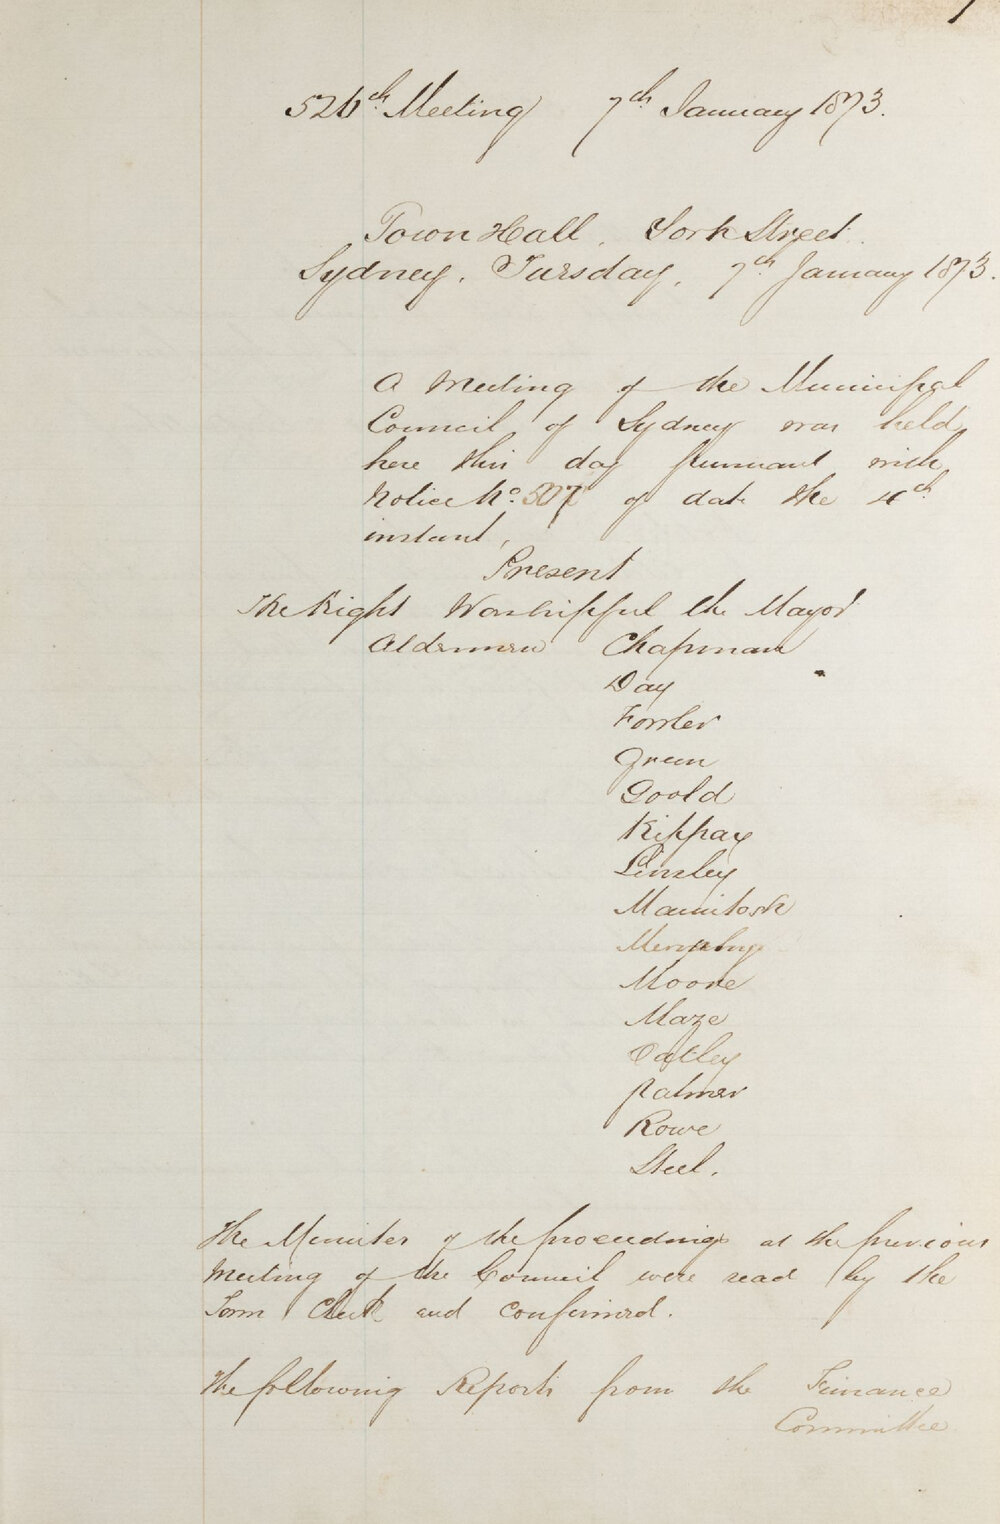 1
526th Meeting 7th January 1873.
Town Hall, York Street
Sydney, Tuesday, 7th January 1873.
A Meeting of the Municipal
Council of Sydney was held
here this day pursuant with
Notice No. 507 of date the 4th
instant,
Present
The Right Worshipful the Mayor
Aldermen Chapman
Day
Fowler
Green
Goold
Kippax
Linsley
Macintosh
Moore
Maze
Oatley
Palmer
Rowe
Steel.
The Minutes of the proceedings at the previous
Meeting of the Council were read by the
Town Clerk and confirmed.
The following Reports from the Finance
Committee